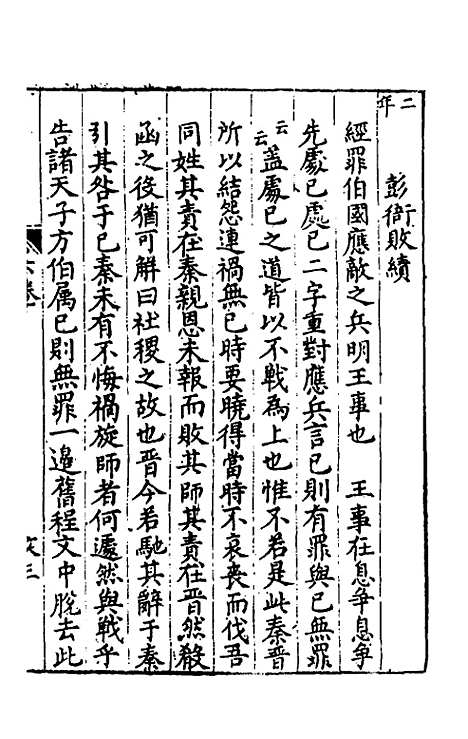 二年
彭衙敗績
經罪伯國應敵之兵明王事也　王事在息爭息爭
先處已處已二字重對應兵言已則有罪與已無罪
云云蓋處已之道皆以不戰為上也惟不若是此秦晉
所以結怨連禍無已時要曉得當時不哀喪而伐吾
同姓其責在秦親恩未報而敗其師其責在晉然殽
函之後猶可解曰社稷之故也晉今若馳其辭于秦
引其咎于已秦未有不悔禍旋師者何遽然與戰乎
告諸天子方伯属已則無罪一邊舊程文中脫去此
六卷
文三